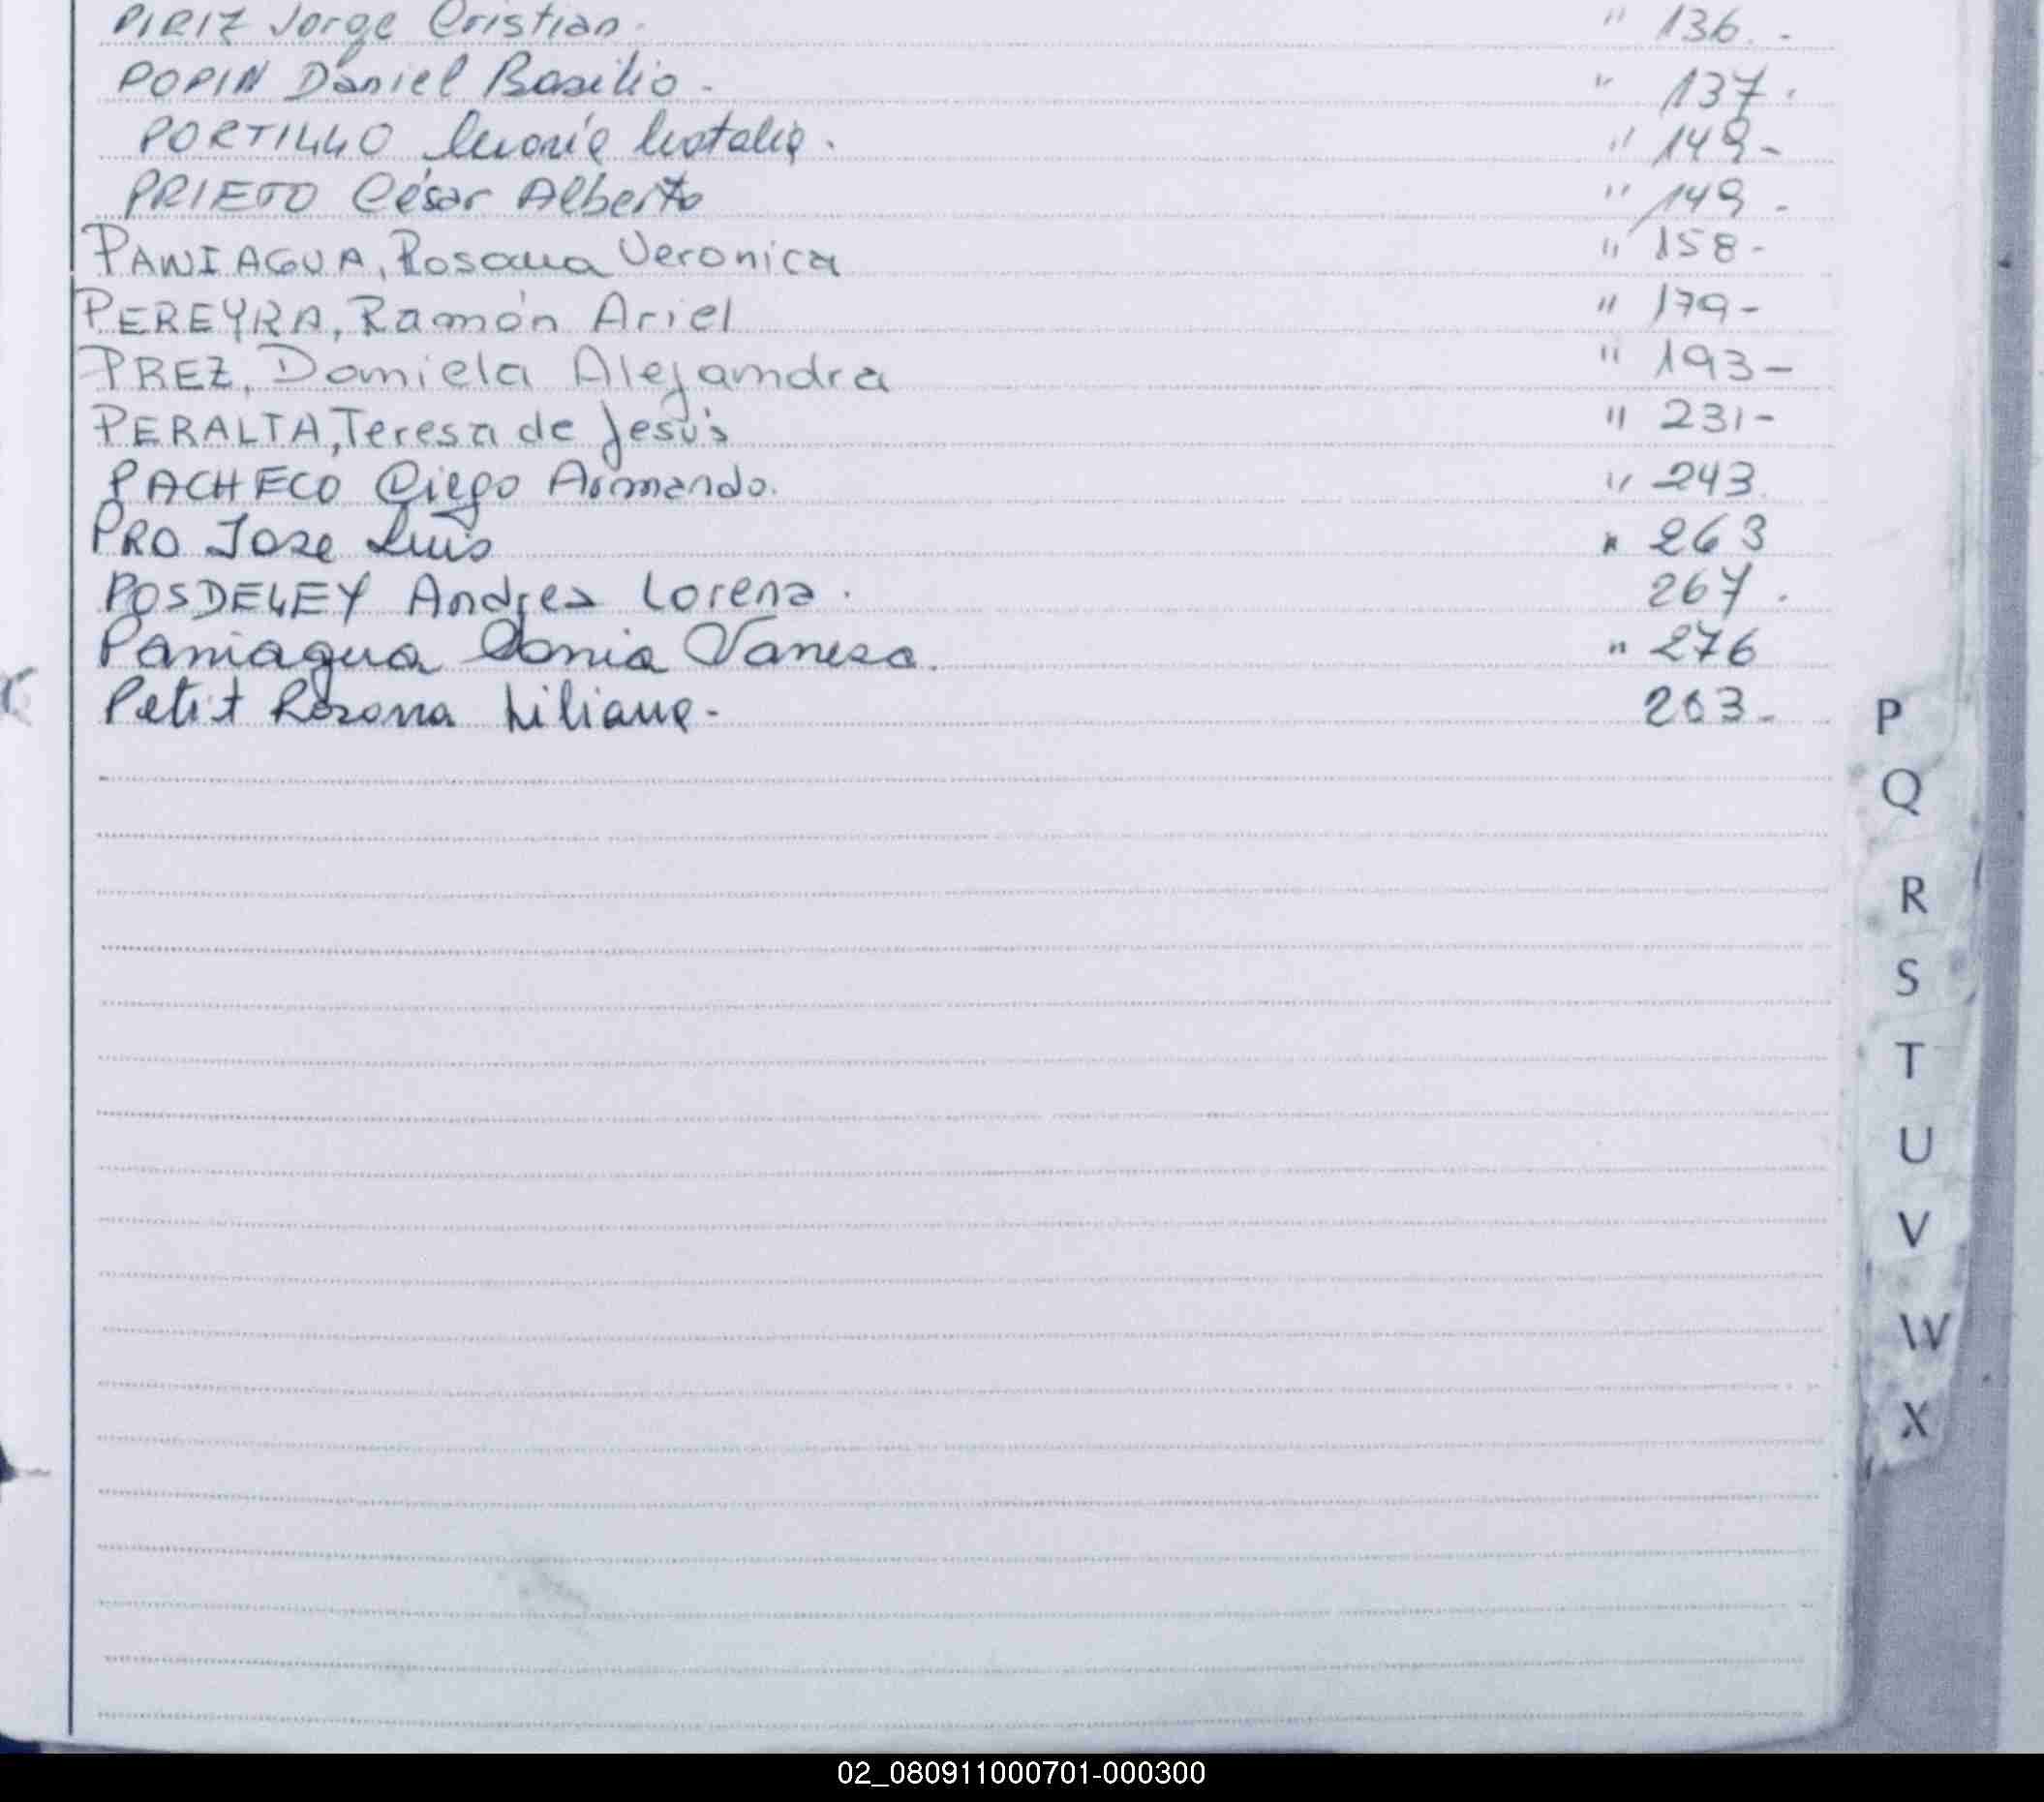 PIRIZ Jorge Cristian. " 136.-
POPIN Daniel Basilio. " 137.
PORTILLO María Natalia. " 149-
PRIETO César Alberto " 149.-
PANIAGUA, Rosana Veronica " 158-
PEREYRA, Ramón Ariel " 179-
PREZ, Daniela Alejandra " 193-
PERALTA, Teresa de Jesús " 231-
PACHECO Diego Armando. " 243.
PRO Jose Luis " 263
POSDELEY Andrea Lorena. 267.
Paniagua Sonia Vanesa. " 276
Petit Rosana Liliana.- 283-
P
Q
R
S
T
U
V
W
X
02_080911000701-000300